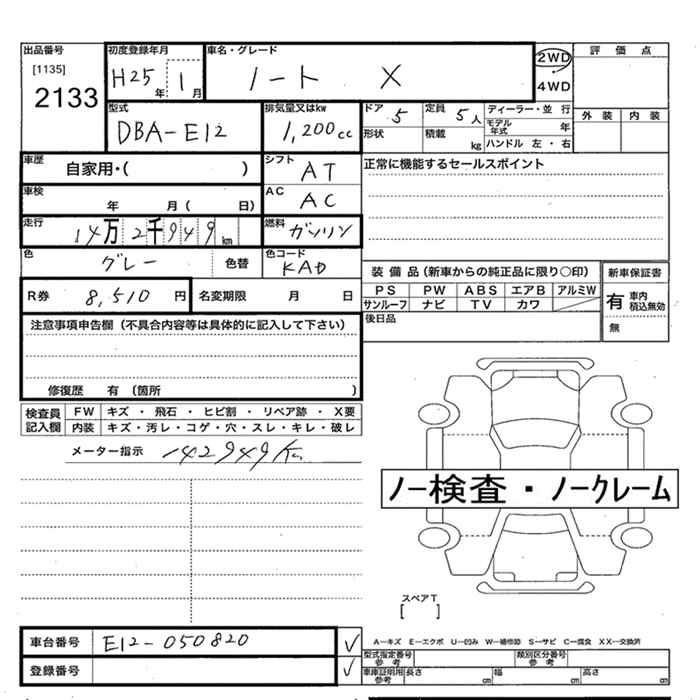 出品番号 初度登録年月 車名・グレード 評価点
[1135] H25年 1月 ノート X 2WD
2133 4WD
型式 排気量又はkw ドア 5 定員 5人 ディーラー・並 行 外装 内装
DBA-E12 1,200cc モデル年式 年
形状 積載 kg ハンドル 左・右
車歴 自家用・( ) シフト AT 正常に機能するセールスポイント
車検 年 月( 日) AC AC
走行 14万2千949km 燃料 ガソリン
色 グレー 色替 色コード KAD
装備品(新車からの純正品に限り○印) 新車保証書
R券 8,510円 名変期限 月 日
PS PW ABS エアB アルミW 有 車内積込無効
サンルーフ ナビ TV カワ
注意事項申告欄(不具合内容等は具体的に記入して下さい) 後日品 無
修復歴 有(箇所 )
検査員記入欄 FW キズ・飛石・ヒビ割・リペア跡・X要
内装 キズ・汚レ・コゲ・穴・スレ・キレ・破レ
メーター指示 142949Km
ノー検査・ノークレーム
スペアT
[ ]
車台番号 E12-050820 ✓
A－キズ E－エクボ U－凹み W－補修跡 S－サビ C－腐食 XX－交換済
登録番号 ✓
型式指定番号参考 類別区分番号参考
車庫証明用参考 長さ cm 幅 cm 高さ cm